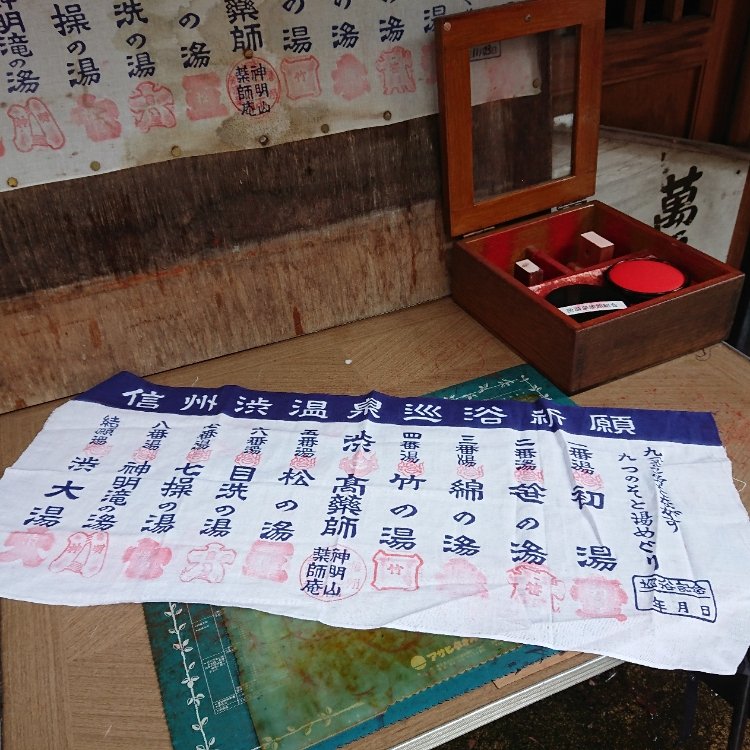 信州渋温泉巡浴祈願
九つのそと湯めぐり
年月日
一番湯
初湯
二番湯
笹の湯
三番湯
綿の湯
四番湯
竹の湯
竹
渋
高薬師
神明山
薬師庵
五番湯
松の湯
六番湯
目洗の湯
七番湯
七操の湯
八番湯
神明滝の湯
結願湯
渋大湯
薬師
神明山
薬師庵
竹
の湯
の湯
の湯
洗の湯
操の湯
神明滝の湯
萬